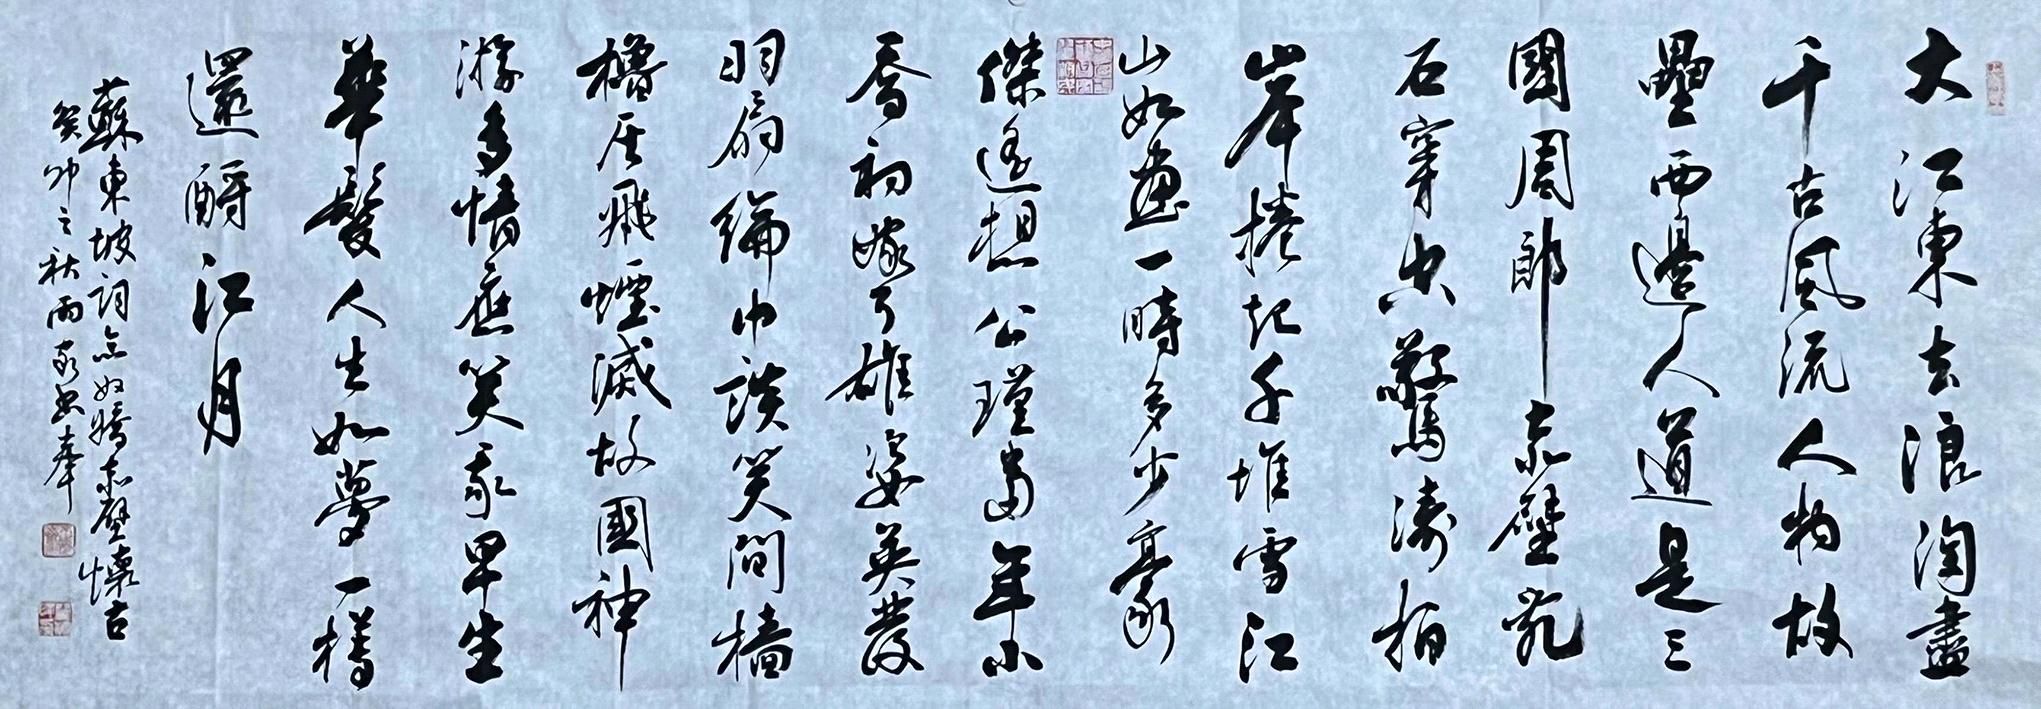 大江東去浪淘盡
千古風流人物故
壘西邊人道是三
國周郎赤壁亂
石穿空驚濤拍
岸捲起千堆雪江
山如畫一時多少豪
傑遙想公瑾當年小
喬初嫁了雄姿英發
羽扇綸巾談笑間檣
櫓灰飛煙滅故國神
游多情應笑我早生
華髮人生如夢一樽
還酹江月
蘇東坡詞念奴嬌赤壁懷古
癸卯之秋雨